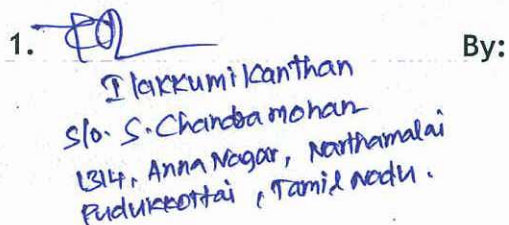 1. By:
Ilakkumikanthan
S/o. S. Chandramohan
1314, Anna Nagar, Narthamalai
Pudukkottai, Tamil Nadu.